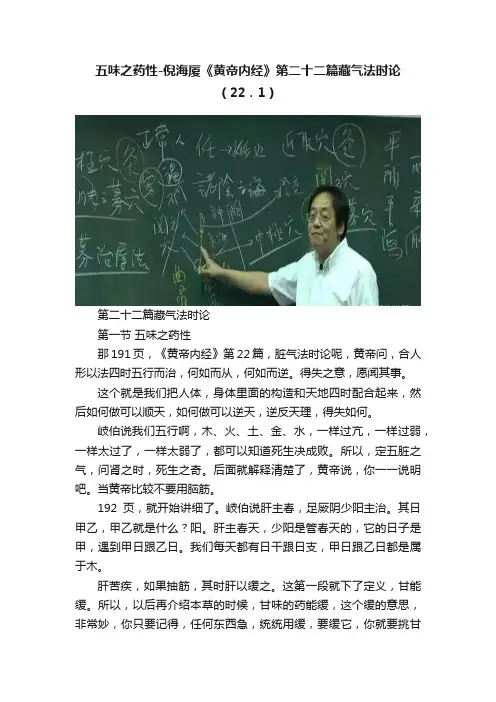 五味之药性-倪海厦《黄帝内经》第二十二篇藏气法时论
（22．1）
正常人
任
近取穴
灸
平
关
募治厚法
中极穴
第二十二篇藏气法时论
第一节 五味之药性
那191页，《黄帝内经》第22篇，脏气法时论呢，黄帝问，合人
形以法四时五行而治，何如而从，何如而逆。得失之意，愿闻其事。
这个就是我们把人体，身体里面的构造和天地四时配合起来，然
后如何做可以顺天，如何做可以逆天，逆反天理，得失如何。
岐伯说我们五行啊，木、火、土、金、水，一样过亢，一样过弱，
一样太过了，一样太弱了，都可以知道死生决成败。所以，定五脏之
气，问肾之时，死生之奇。后面就解释清楚了，黄帝说，你一一说明
吧。当黄帝比较不要用脑筋。
192 页，就开始讲细了。岐伯说肝主春，足厥阴少阳主治。其日
甲乙，甲乙就是什么？阳。肝主春天，少阳是管春天的，它的日子是
甲，遇到甲日跟乙日。我们每天都有日干跟日支，甲日跟乙日都是属
于木。
肝苦疾，如果抽筋，其时肝以缓之。这第一段就下了定义，甘能
缓。所以，以后再介绍本草的时候，甘味的药能缓，这个缓的意思，
非常妙，你只要记得，任何东西急，统统用缓，要缓它，你就要挑甘